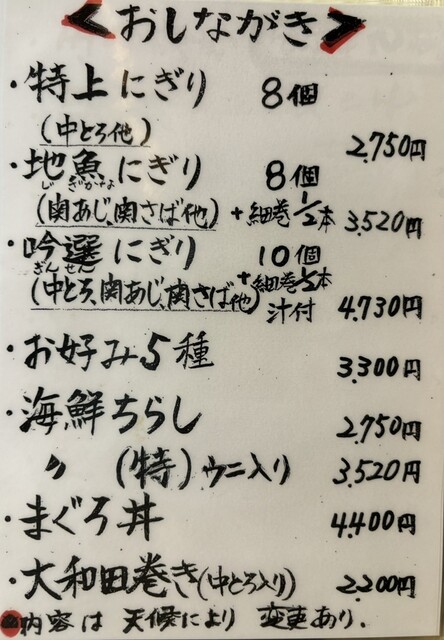 <おしながき>
・特上にぎり 8個
(中とろ他) 2,750円
・地魚にぎり 8個
じざかな
(関あじ、関さば他) +細巻1/2本 3,520円
・吟選にぎり 10個
ぎんせん
(中とろ、関あじ、関さば他) +細巻1/2本
汁付 4,730円
・お好み5種 3,300円
・海鮮ちらし 2,750円
〃 (特)ウニ入り 3,520円
・まぐろ丼 4,400円
・大和田巻き(中とろ入り) 2,200円
●内容は天候により変更あり.